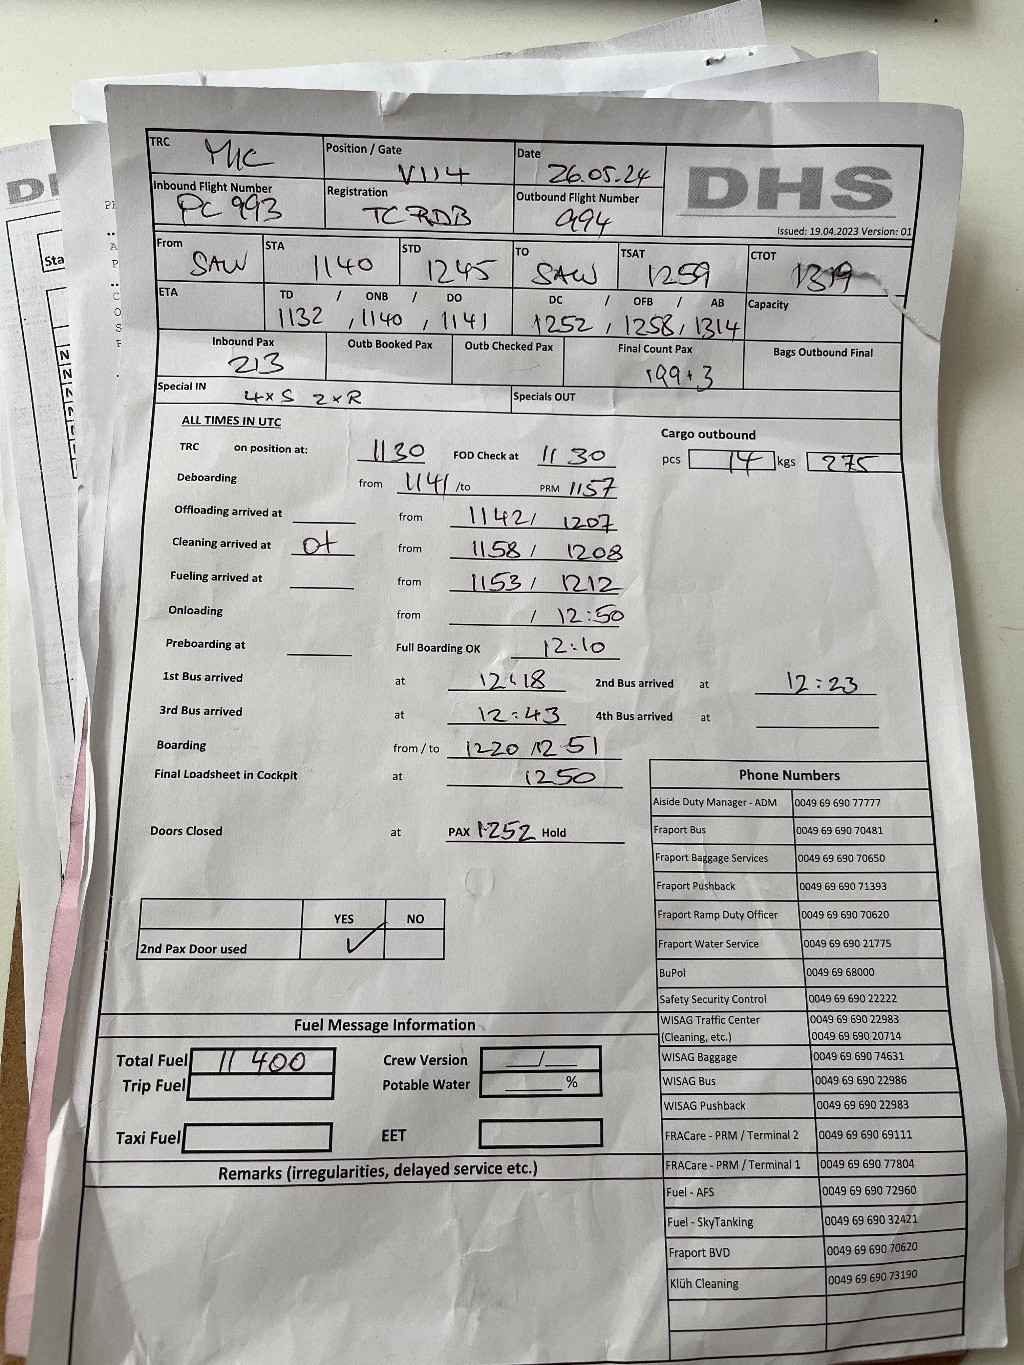 TRC MIC Position / Gate V114 Date 26.05.24 DHS
Inbound Flight Number PC 993 Registration TC RDB Outbound Flight Number 994
Issued: 19.04.2023 Version: 01
From SAW STA 1140 STD 1245 TO SAW TSAT 1259 CTOT 1319
ETA TD / ONB / DO DC / OFB / AB Capacity
1132 , 1140 , 1141 1252 , 1258, 1314
Inbound Pax Outb Booked Pax Outb Checked Pax Final Count Pax Bags Outbound Final
213 199+3
Special IN 4xS 2xR Specials OUT
ALL TIMES IN UTC
Cargo outbound
TRC on position at: 1130 FOD Check at 11 30
pcs 14 kgs 275
Deboarding from 1141 /to PRM 1157
Offloading arrived at from 1142/ 1207
Cleaning arrived at ot from 1158 / 1208
Fueling arrived at from 1153 / 1212
Onloading from / 12:50
Preboarding at Full Boarding OK 12:10
1st Bus arrived at 12:18 2nd Bus arrived at 12:23
3rd Bus arrived at 12:43 4th Bus arrived at
Boarding from / to 1220 / 12 51
Final Loadsheet in Cockpit at 1250
Doors Closed at PAX 1252 Hold
YES NO
2nd Pax Door used ✓
Phone Numbers
Aiside Duty Manager - ADM 0049 69 690 77777
Fraport Bus 0049 69 690 70481
Fraport Baggage Services 0049 69 690 70650
Fraport Pushback 0049 69 690 71393
Fraport Ramp Duty Officer 0049 69 690 70620
Fraport Water Service 0049 69 690 21775
BuPol 0049 69 68000
Safety Security Control 0049 69 690 22222
WISAG Traffic Center 0049 69 690 22983
(Cleaning, etc.) 0049 69 690 20714
WISAG Baggage 0049 69 690 74631
WISAG Bus 0049 69 690 22986
WISAG Pushback 0049 69 690 22983
FRACare - PRM / Terminal 2 0049 69 690 69111
FRACare - PRM / Terminal 1 0049 69 690 77804
Fuel - AFS 0049 69 690 72960
Fuel - SkyTanking 0049 69 690 32421
Fraport BVD 0049 69 690 70620
Klüh Cleaning 0049 69 690 73190
Fuel Message Information
Total Fuel 11 400 Crew Version /
Trip Fuel Potable Water %
Taxi Fuel EET
Remarks (irregularities, delayed service etc.)